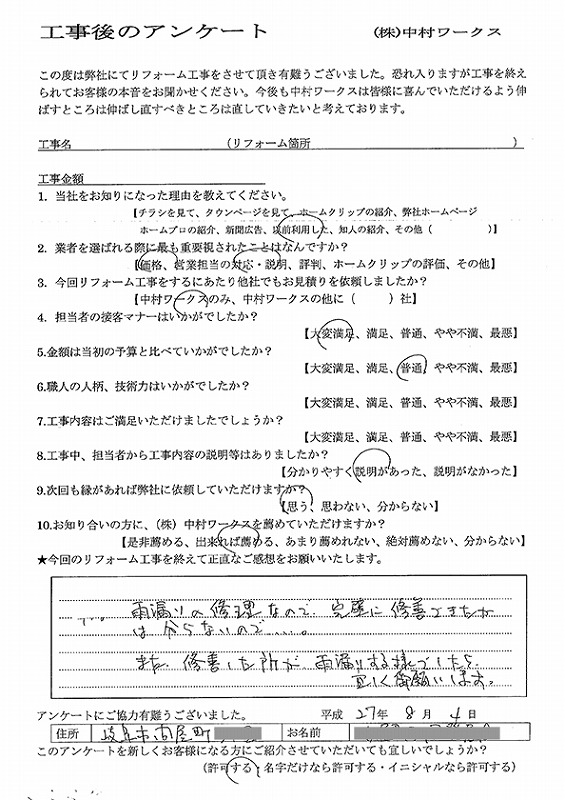 工事後のアンケート (株)中村ワークス
この度は弊社にてリフォーム工事をさせて頂き有難うございました。恐れ入りますが工事を終え
られてお客様の本音をお聞かせください。今後も中村ワークスは皆様に喜んでいただけるよう伸
ばすところは伸ばし直すべきところは直していきたいと考えております。
工事名 (リフォーム箇所 )
工事金額
1. 当社をお知りになった理由を教えてください。
【チラシを見て、タウンページを見て、ホームクリップの紹介、弊社ホームページ
ホームプロの紹介、新聞広告、以前利用した、知人の紹介、その他( )】
2. 業者を選ばれる際に最も重要視されたことはなんですか?
【価格、営業担当の対応・説明、評判、ホームクリップの評価、その他】
3. 今回リフォーム工事をするにあたり他社でもお見積りを依頼しましたか?
【中村ワークスのみ、中村ワークスの他に( )社】
4. 担当者の接客マナーはいかがでしたか?
【大変満足、満足、普通、やや不満、最悪】
5.金額は当初の予算と比べていかがでしたか?
【大変満足、満足、普通、やや不満、最悪】
6.職人の人柄、技術力はいかがでしたか?
【大変満足、満足、普通、やや不満、最悪】
7.工事内容はご満足いただけましたでしょうか?
【大変満足、満足、普通、やや不満、最悪】
8.工事中、担当者から工事内容の説明等はありましたか?
【分かりやすく説明があった、説明がなかった】
9.次回も縁があれば弊社に依頼していただけますか?
【思う、思わない、分からない】
10.お知り合いの方に、(株)中村ワークスを薦めていただけますか?
【是非薦める、出来れば薦める、あまり薦めれない、絶対薦めない、分からない】
★今回のリフォーム工事を終えて正直なご感想をお願いいたします。
雨漏りの修理なので、完璧に修善できたか
は分らないので……。
また、修善した所が、雨漏りする様でしたら、
宜しく御願いします。
アンケートにご協力有難うございました。 平成 27年 8月 4日
住所 岐阜市 お名前
このアンケートを新しくお客様になる方にご紹介させていただいても宜しいでしょうか?
(許可する・名字だけなら許可する・イニシャルなら許可する)